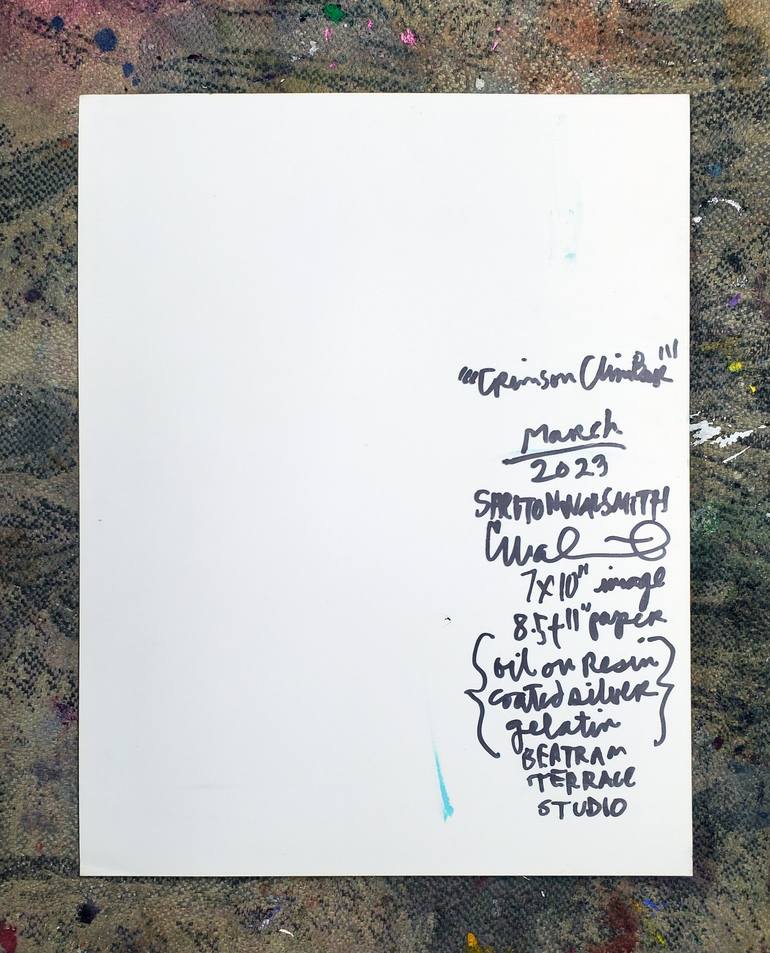 "Crimson Climber"
March
2023
7x10" image
8.5+11" paper
{oil on Resin
coated silver
gelatin}
BERTRAM
TERRACE
STUDIO